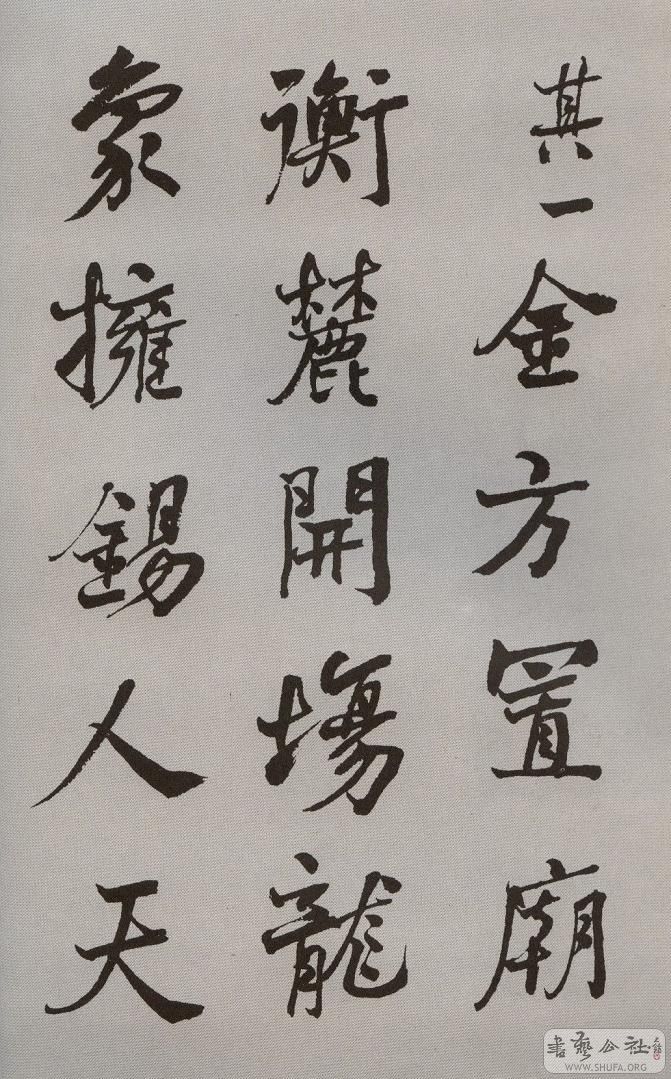 其一金方置廟
衡麓開場龍
象擁錫人天
書藝公社
WWW.SHUFA.ORG